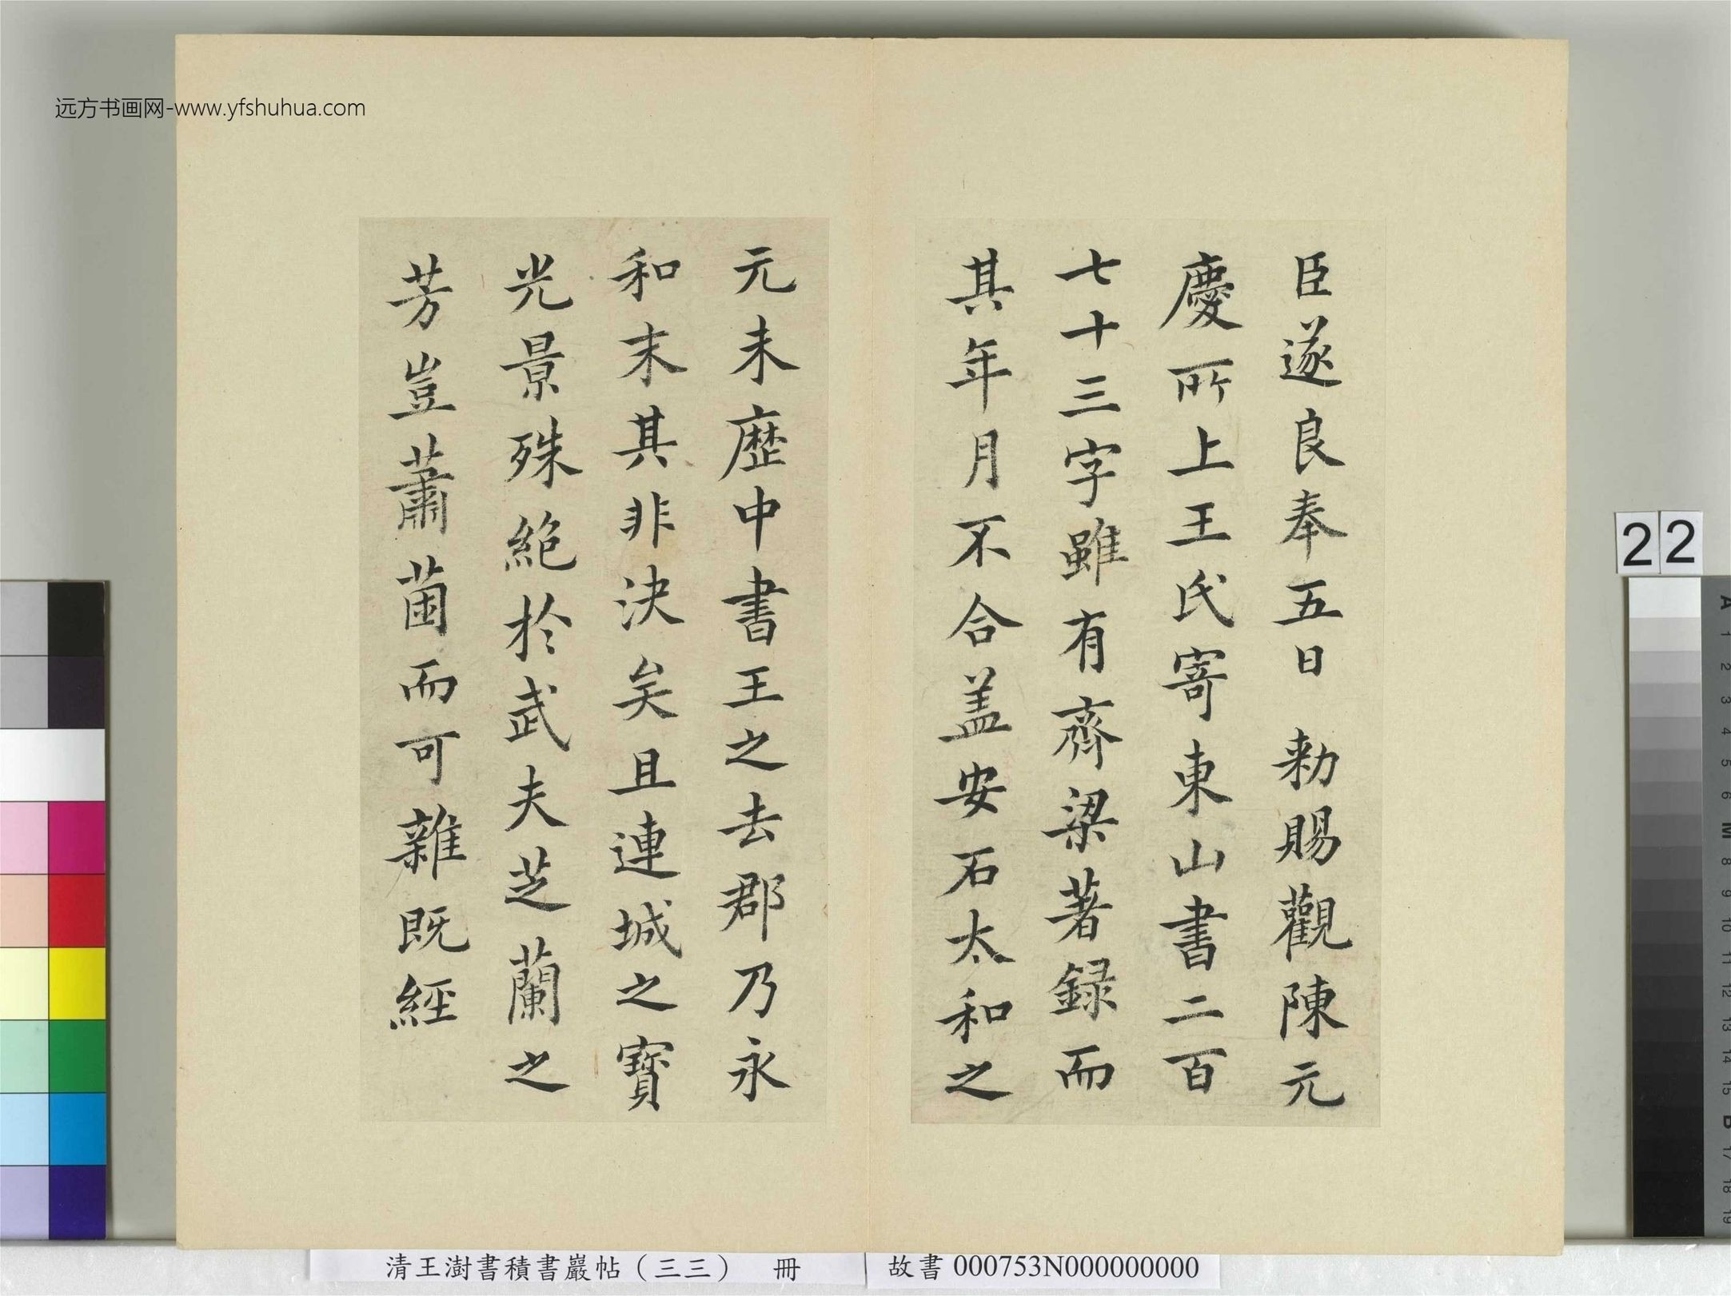 远方书画网-www.yfshuhua.com
臣遂良奉五日 勑賜觀陳元
慶所上王氏寄東山書二百
七十三字雖有齊梁著録而
其年月不合盖安石太和之
元未歴中書王之去郡乃永
和末其非決矣且連城之寳
光景殊絶於武夫芝蘭之
芳豈蕭茵而可雜既經
22
清王澍書積書巖帖（三三） 冊
故書 000753N000000000